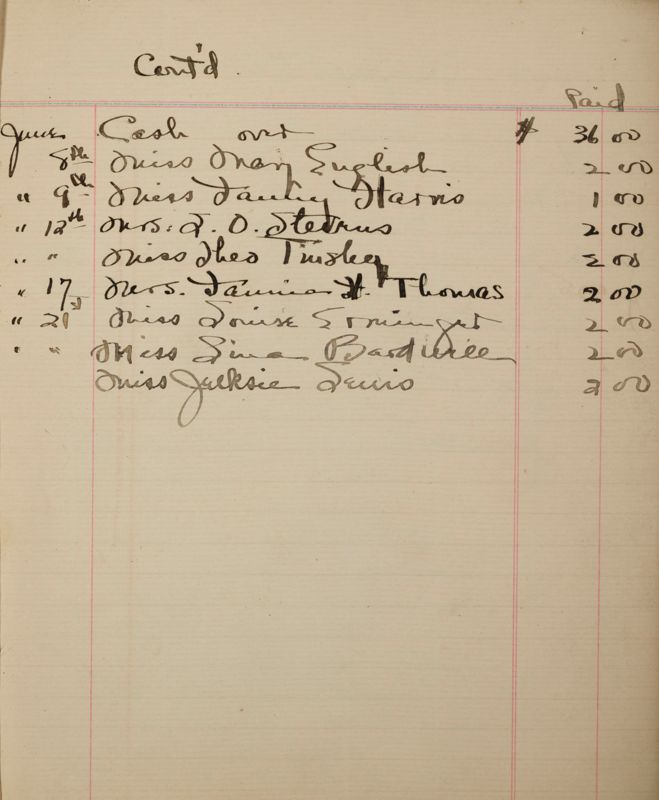 Cont'd.
Paid
June Cash over $ 36 00
8th Miss Mary English 2 00
" 9th Miss Fanny Harris 1 00
" 12th Mrs. L. O. Stevens 2 00
" " Miss Theo Tinsley 2 00
" 17 Mrs. Fannie H. Thomas 2 00
" 21st Miss Louise Erminger 2 00
" " Miss Lina Bardwell 2 00
Miss Lewis 2 00